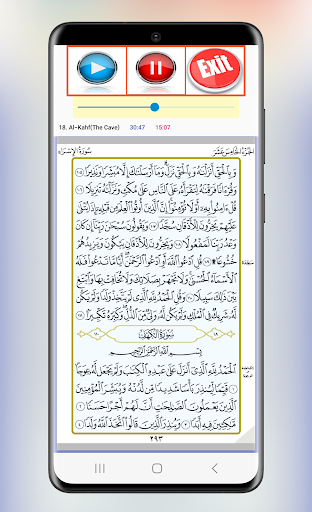 Exit
18. Al-Kahf(The Cave) 30:47 15:07
سُورَةُ الإِسْرَاء الجُزءُ الخَامِسَ عَشَرَ
وَبِٱلْحَقِّ أَنزَلْنَٰهُ وَبِٱلْحَقِّ نَزَلَ ۗ وَمَآ أَرْسَلْنَٰكَ إِلَّا مُبَشِّرًا وَنَذِيرًا ١٠٥
وَقُرْءَانًا فَرَقْنَٰهُ لِتَقْرَأَهُۥ عَلَى ٱلنَّاسِ عَلَىٰ مُكْثٍ وَنَزَّلْنَٰهُ تَنزِيلًا ١٠٦
قُلْ ءَامِنُوا۟ بِهِۦٓ أَوْ لَا تُؤْمِنُوٓا۟ ۚ إِنَّ ٱلَّذِينَ أُوتُوا۟ ٱلْعِلْمَ مِن قَبْلِهِۦٓ إِذَا يُتْلَىٰ
عَلَيْهِمْ يَخِرُّونَ لِلْأَذْقَانِ سُجَّدًا ١٠٧ وَيَقُولُونَ سُبْحَٰنَ رَبِّنَآ إِن كَانَ
وَعْدُ رَبِّنَا لَمَفْعُولًا ١٠٨ وَيَخِرُّونَ لِلْأَذْقَانِ يَبْكُونَ وَيَزِيدُهُمْ
خُشُوعًا ۩ ١٠٩ قُلِ ٱدْعُوا۟ ٱللَّهَ أَوِ ٱدْعُوا۟ ٱلرَّحْمَٰنَ ۖ أَيًّا مَّا تَدْعُوا۟ فَلَهُ
ٱلْأَسْمَآءُ ٱلْحُسْنَىٰ ۚ وَلَا تَجْهَرْ بِصَلَاتِكَ وَلَا تُخَافِتْ بِهَا وَٱبْتَغِ
بَيْنَ ذَٰلِكَ سَبِيلًا ١١٠ وَقُلِ ٱلْحَمْدُ لِلَّهِ ٱلَّذِى لَمْ يَتَّخِذْ وَلَدًا وَلَمْ يَكُن لَّهُۥ
شَرِيكٌ فِى ٱلْمُلْكِ وَلَمْ يَكُن لَّهُۥ وَلِىٌّ مِّنَ ٱلذُّلِّ ۖ وَكَبِّرْهُ تَكْبِيرًۢا ١١١
سُورَةُ الكَهْفِ
بِسْمِ ٱللَّهِ ٱلرَّحْمَٰنِ ٱلرَّحِيمِ
ٱلْحَمْدُ لِلَّهِ ٱلَّذِىٓ أَنزَلَ عَلَىٰ عَبْدِهِ ٱلْكِتَٰبَ وَلَمْ يَجْعَل لَّهُۥ عِوَجَا
١ قَيِّمًا لِّيُنذِرَ بَأْسًا شَدِيدًا مِّن لَّدُنْهُ وَيُبَشِّرَ ٱلْمُؤْمِنِينَ
ٱلَّذِينَ يَعْمَلُونَ ٱلصَّٰلِحَٰتِ أَنَّ لَهُمْ أَجْرًا حَسَنًا ٢
مَّٰكِثِينَ فِيهِ أَبَدًا ٣ وَيُنذِرَ ٱلَّذِينَ قَالُوا۟ ٱتَّخَذَ ٱللَّهُ وَلَدًا ٤
٢٩٣